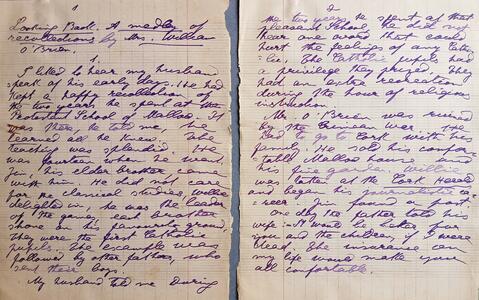 1
Looking Back. A medley of
recollections by Mrs. William
O'Brien.
1.
I liked to hear my husband
speak of his early days. He had
kept a happy recollection of
the two years he spent at the
Protestant School of Mallow. It
was there he told me, he
learned all he knew. The
teaching was splendid. He
was fourteen when he went.
Jim, his elder brother came
with him. He did not care
for the classical studies Willie
delighted in. he was the leader
of the games, each brother
shone on his favourite ground
They were the first Catholic
pupils. The example was
followed by other fathers, who
sent their boys.
My husband told me During
2
the two years he spent at that
pleasant School he did not
hear one word that could
hurt the feelings of any Catho-
lic. The Catholic pupils had
a privilege they prized. They
had an extra recreation
during the hour of religious
instruction.
Mr. O'Brien was ruined
by the Crimean war. He
had to go to Cork with his
family. He sold his comfor-
table Mallow house and
his fine garden. Willie
was written at the Cork Herald
and began his journalistic ca-
reer. Jim found a post.
One day the father told his
wife:- It would be better for
you and the children, if I were
dead. The insurance on
my life would make you
all comfortable.